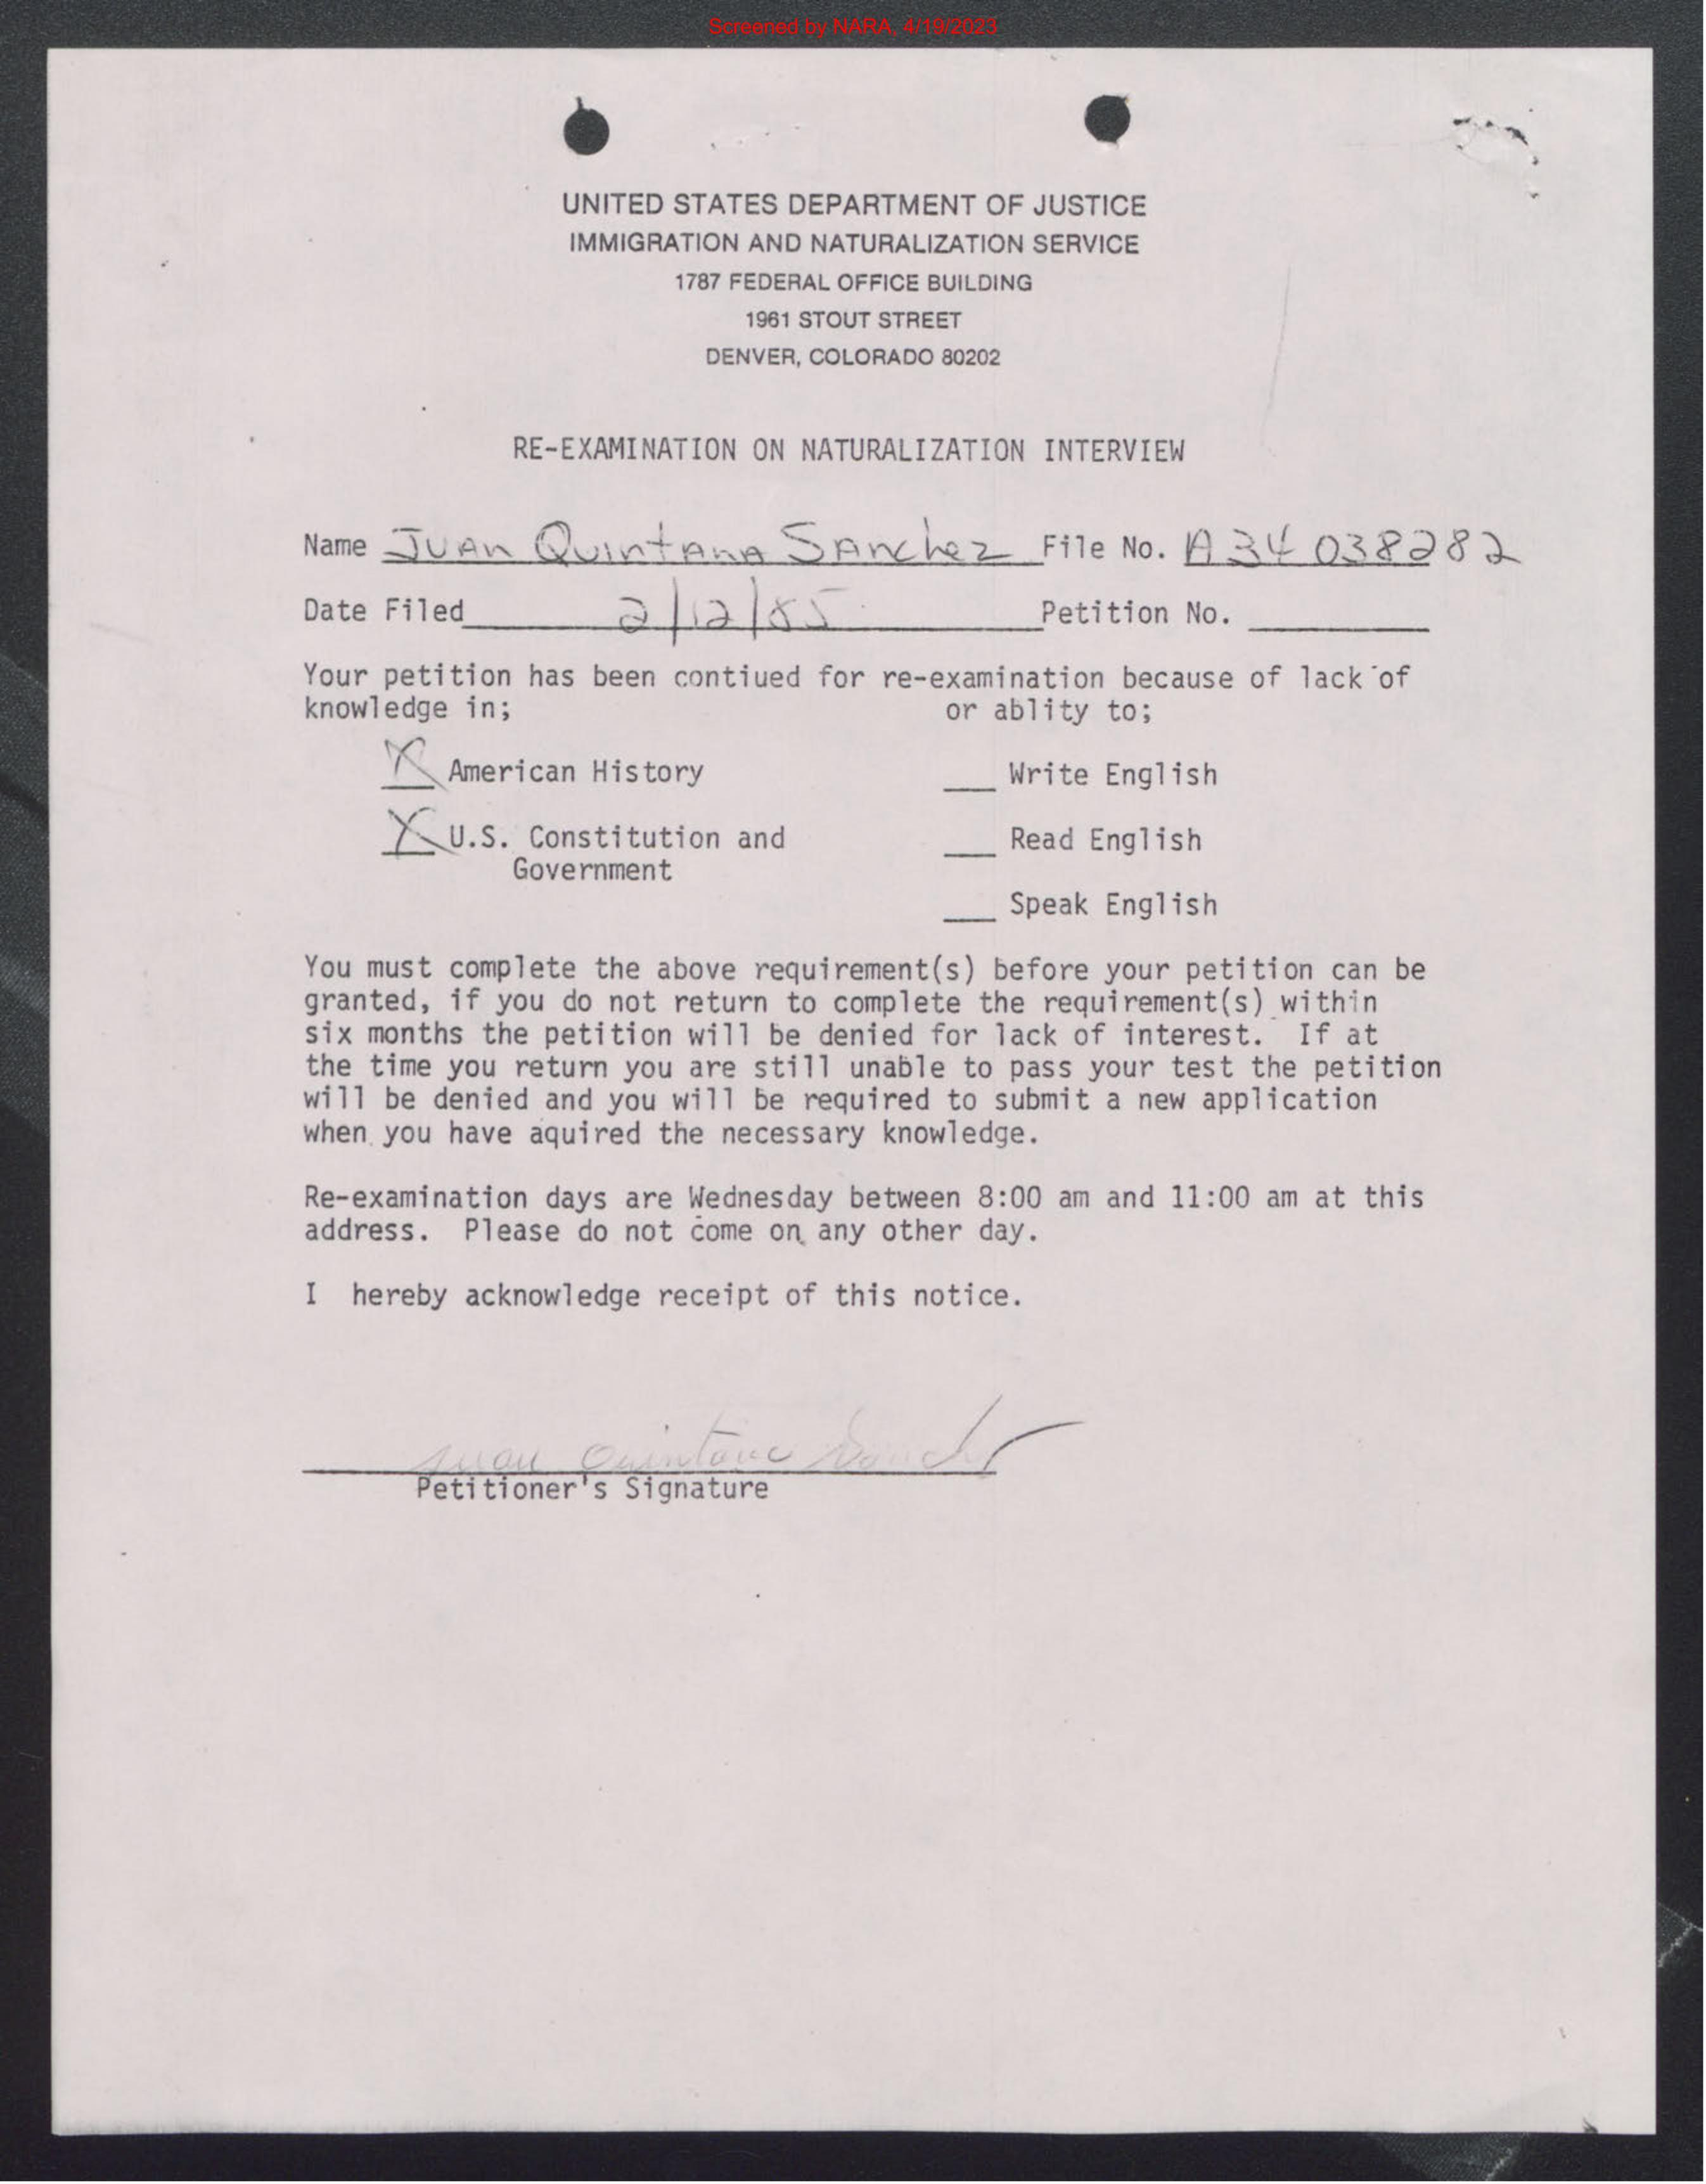 Screened by NARA, 4/19/2023
UNITED STATES DEPARTMENT OF JUSTICE
IMMIGRATION AND NATURALIZATION SERVICE
1787 FEDERAL OFFICE BUILDING
1961 STOUT STREET
DENVER, COLORADO 80202
RE-EXAMINATION ON NATURALIZATION INTERVIEW
Name Juan Quintana Sanchez File No. A34 038282
Date Filed 2/12/85 Petition No.
Your petition has been contiued for re-examination because of lack of
knowledge in; or ablity to;
X American History Write English
X U.S. Constitution and Read English
Government
Speak English
You must complete the above requirement(s) before your petition can be
granted, if you do not return to complete the requirement(s) within
six months the petition will be denied for lack of interest. If at
the time you return you are still unable to pass your test the petition
will be denied and you will be required to submit a new application
when you have aquired the necessary knowledge.
Re-examination days are Wednesday between 8:00 am and 11:00 am at this
address. Please do not come on any other day.
I hereby acknowledge receipt of this notice.
Juan Quintana Sanchez
Petitioner's Signature